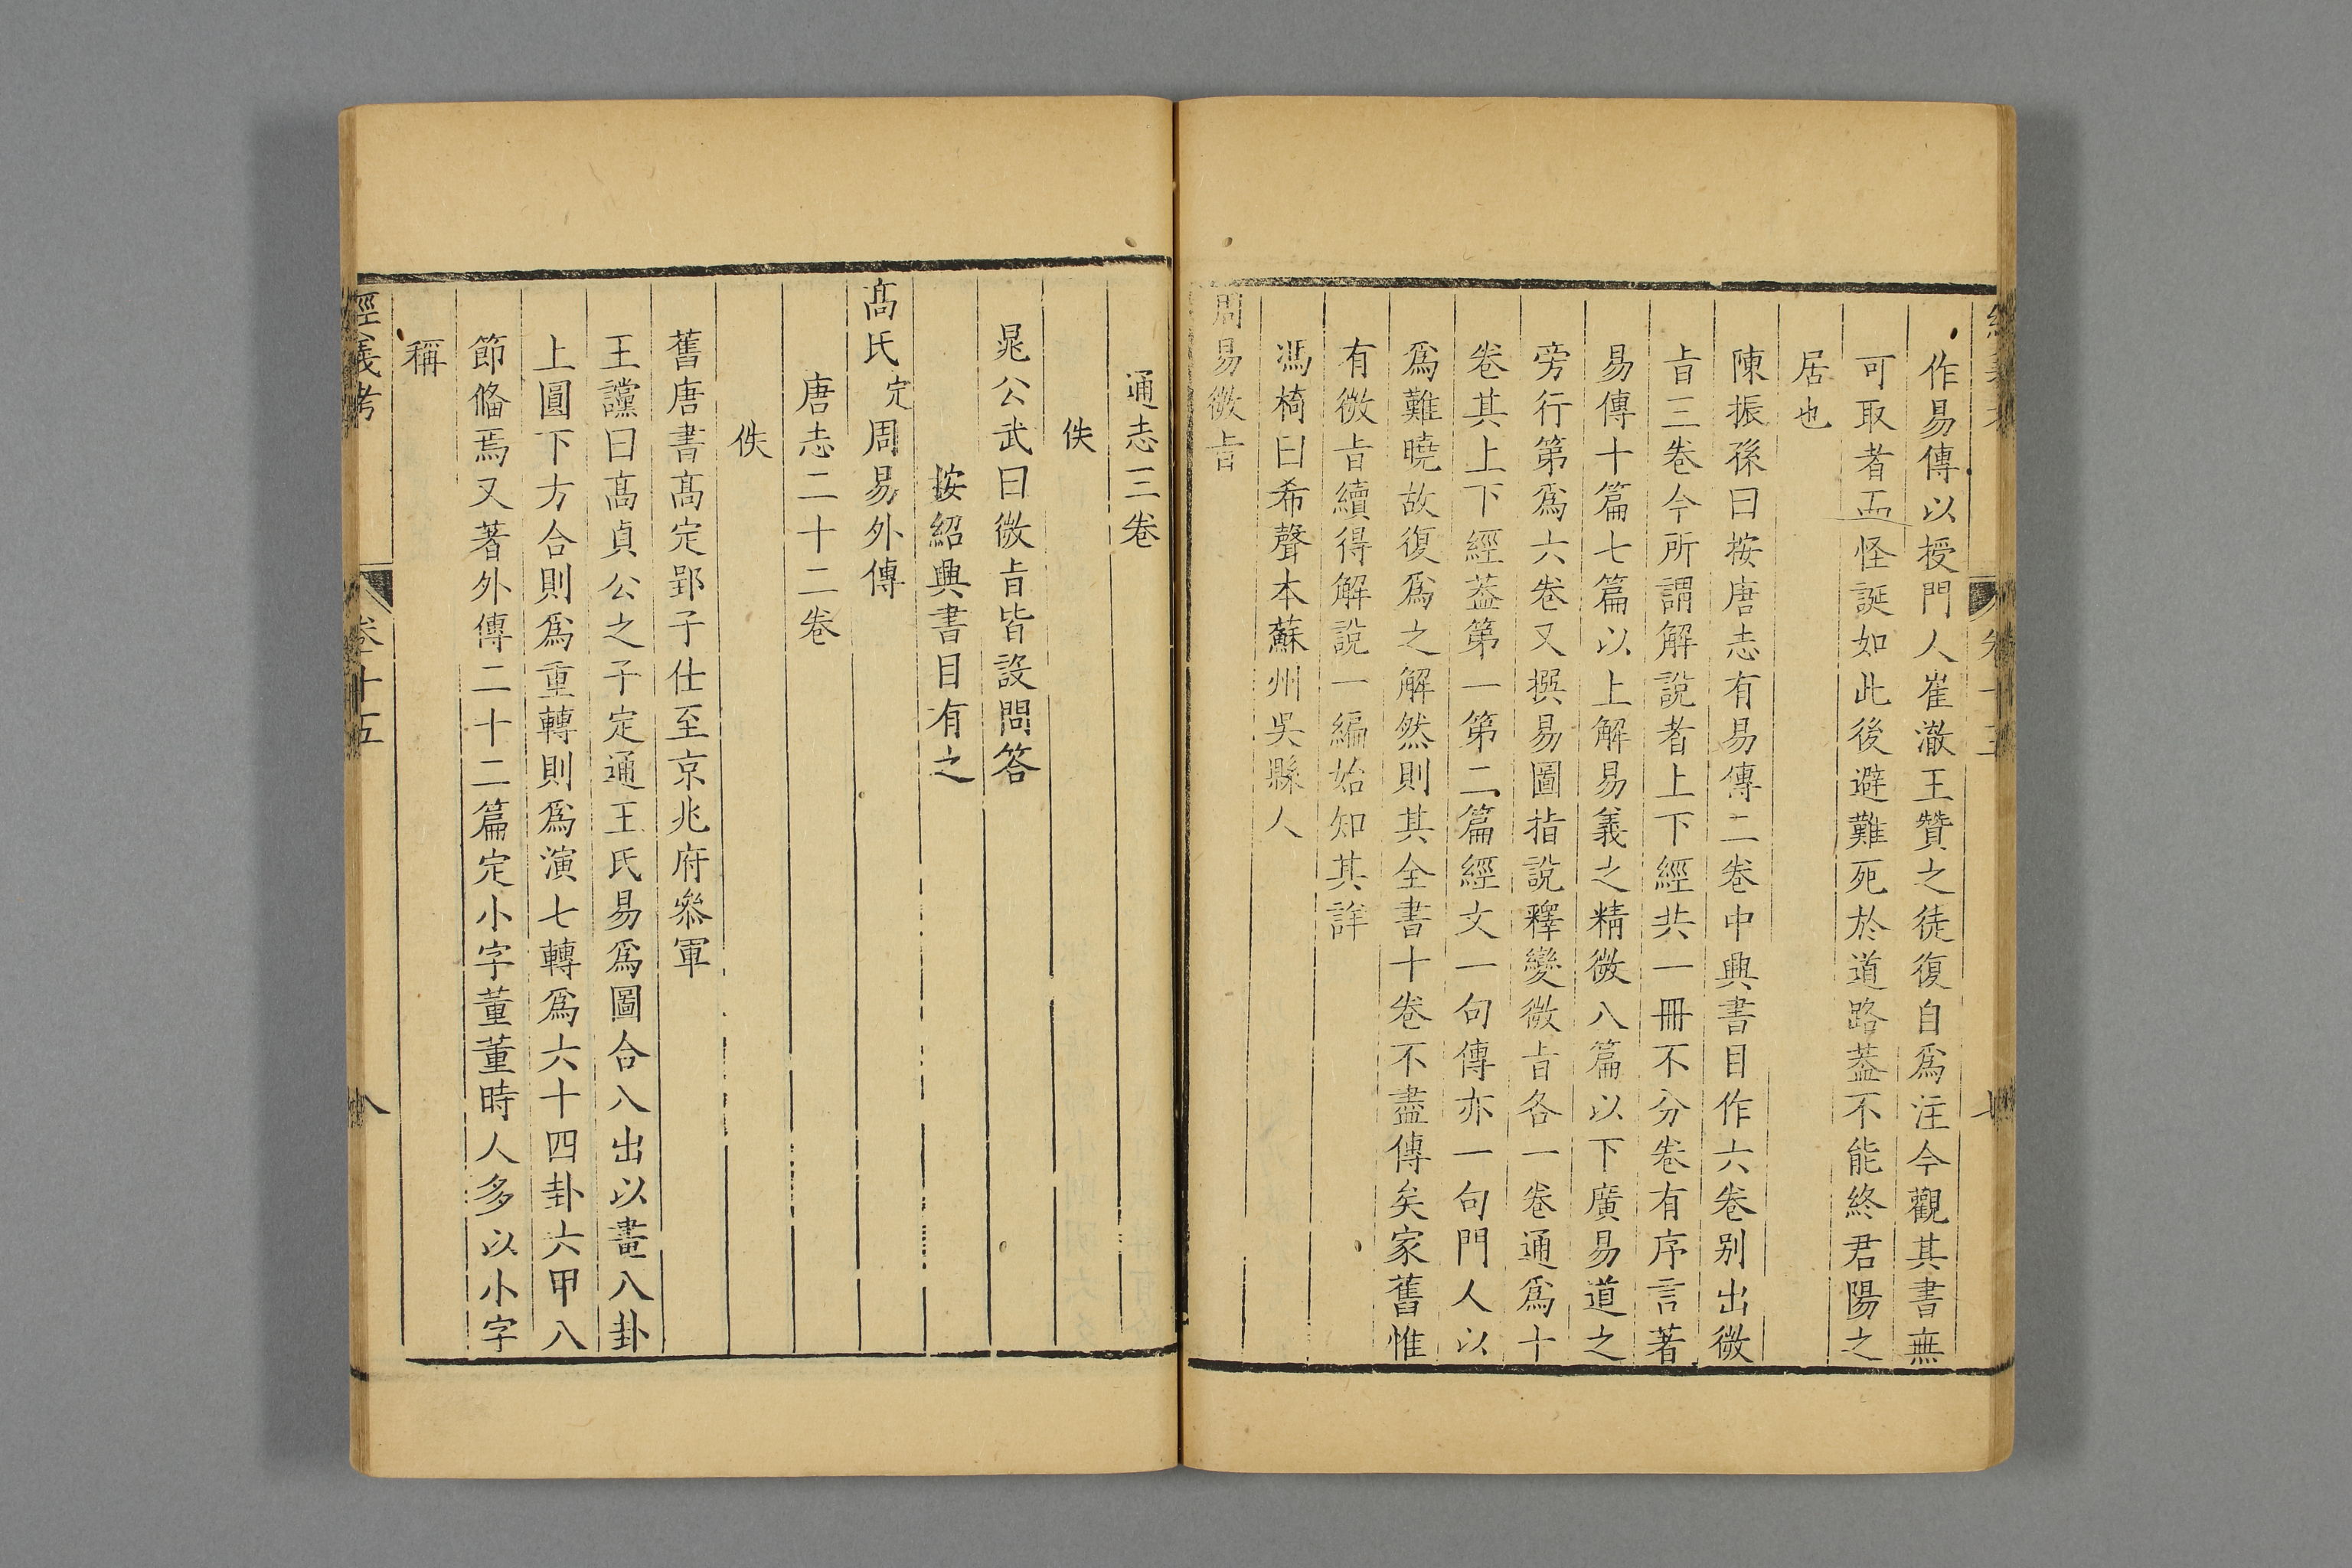 作易傳以授門人崔澈王贊之徒復自爲注今觀其書無
可取者而怪誕如此後避難死於道路葢不能終君陽之
居也
陳振孫曰按唐志有易傳二卷中興書目作六卷别出微
㫖三卷今所謂解說者上下經共一冊不分卷有序言著
易傳十篇七篇以上解易義之精微八篇以下廣易道之
旁行第爲六卷又撰易圖指說釋變微㫖各一卷通爲十
卷其上下經葢第一第二篇經文一句傳亦一句門人以
爲難曉故復爲之解然則其全書十卷不盡傳矣家舊惟
有微㫖續得解說一編始知其詳
馮椅曰希聲本蘇州吳縣人
周易微㫖
通志三卷
佚
晁公武曰微㫖皆設問答
按紹興書目有之
髙氏定周易外傳
唐志二十二卷
佚
舊唐書髙定郢子仕至京兆府叅軍
王讜曰髙貞公之子定通王氏易爲圖合八出以畫八卦
上圓下方合則爲重轉則爲演七轉爲六十四卦六甲八
節俻焉又著外傳二十二篇定小字董董時人多以小字
稱
經義考
卷十五
八